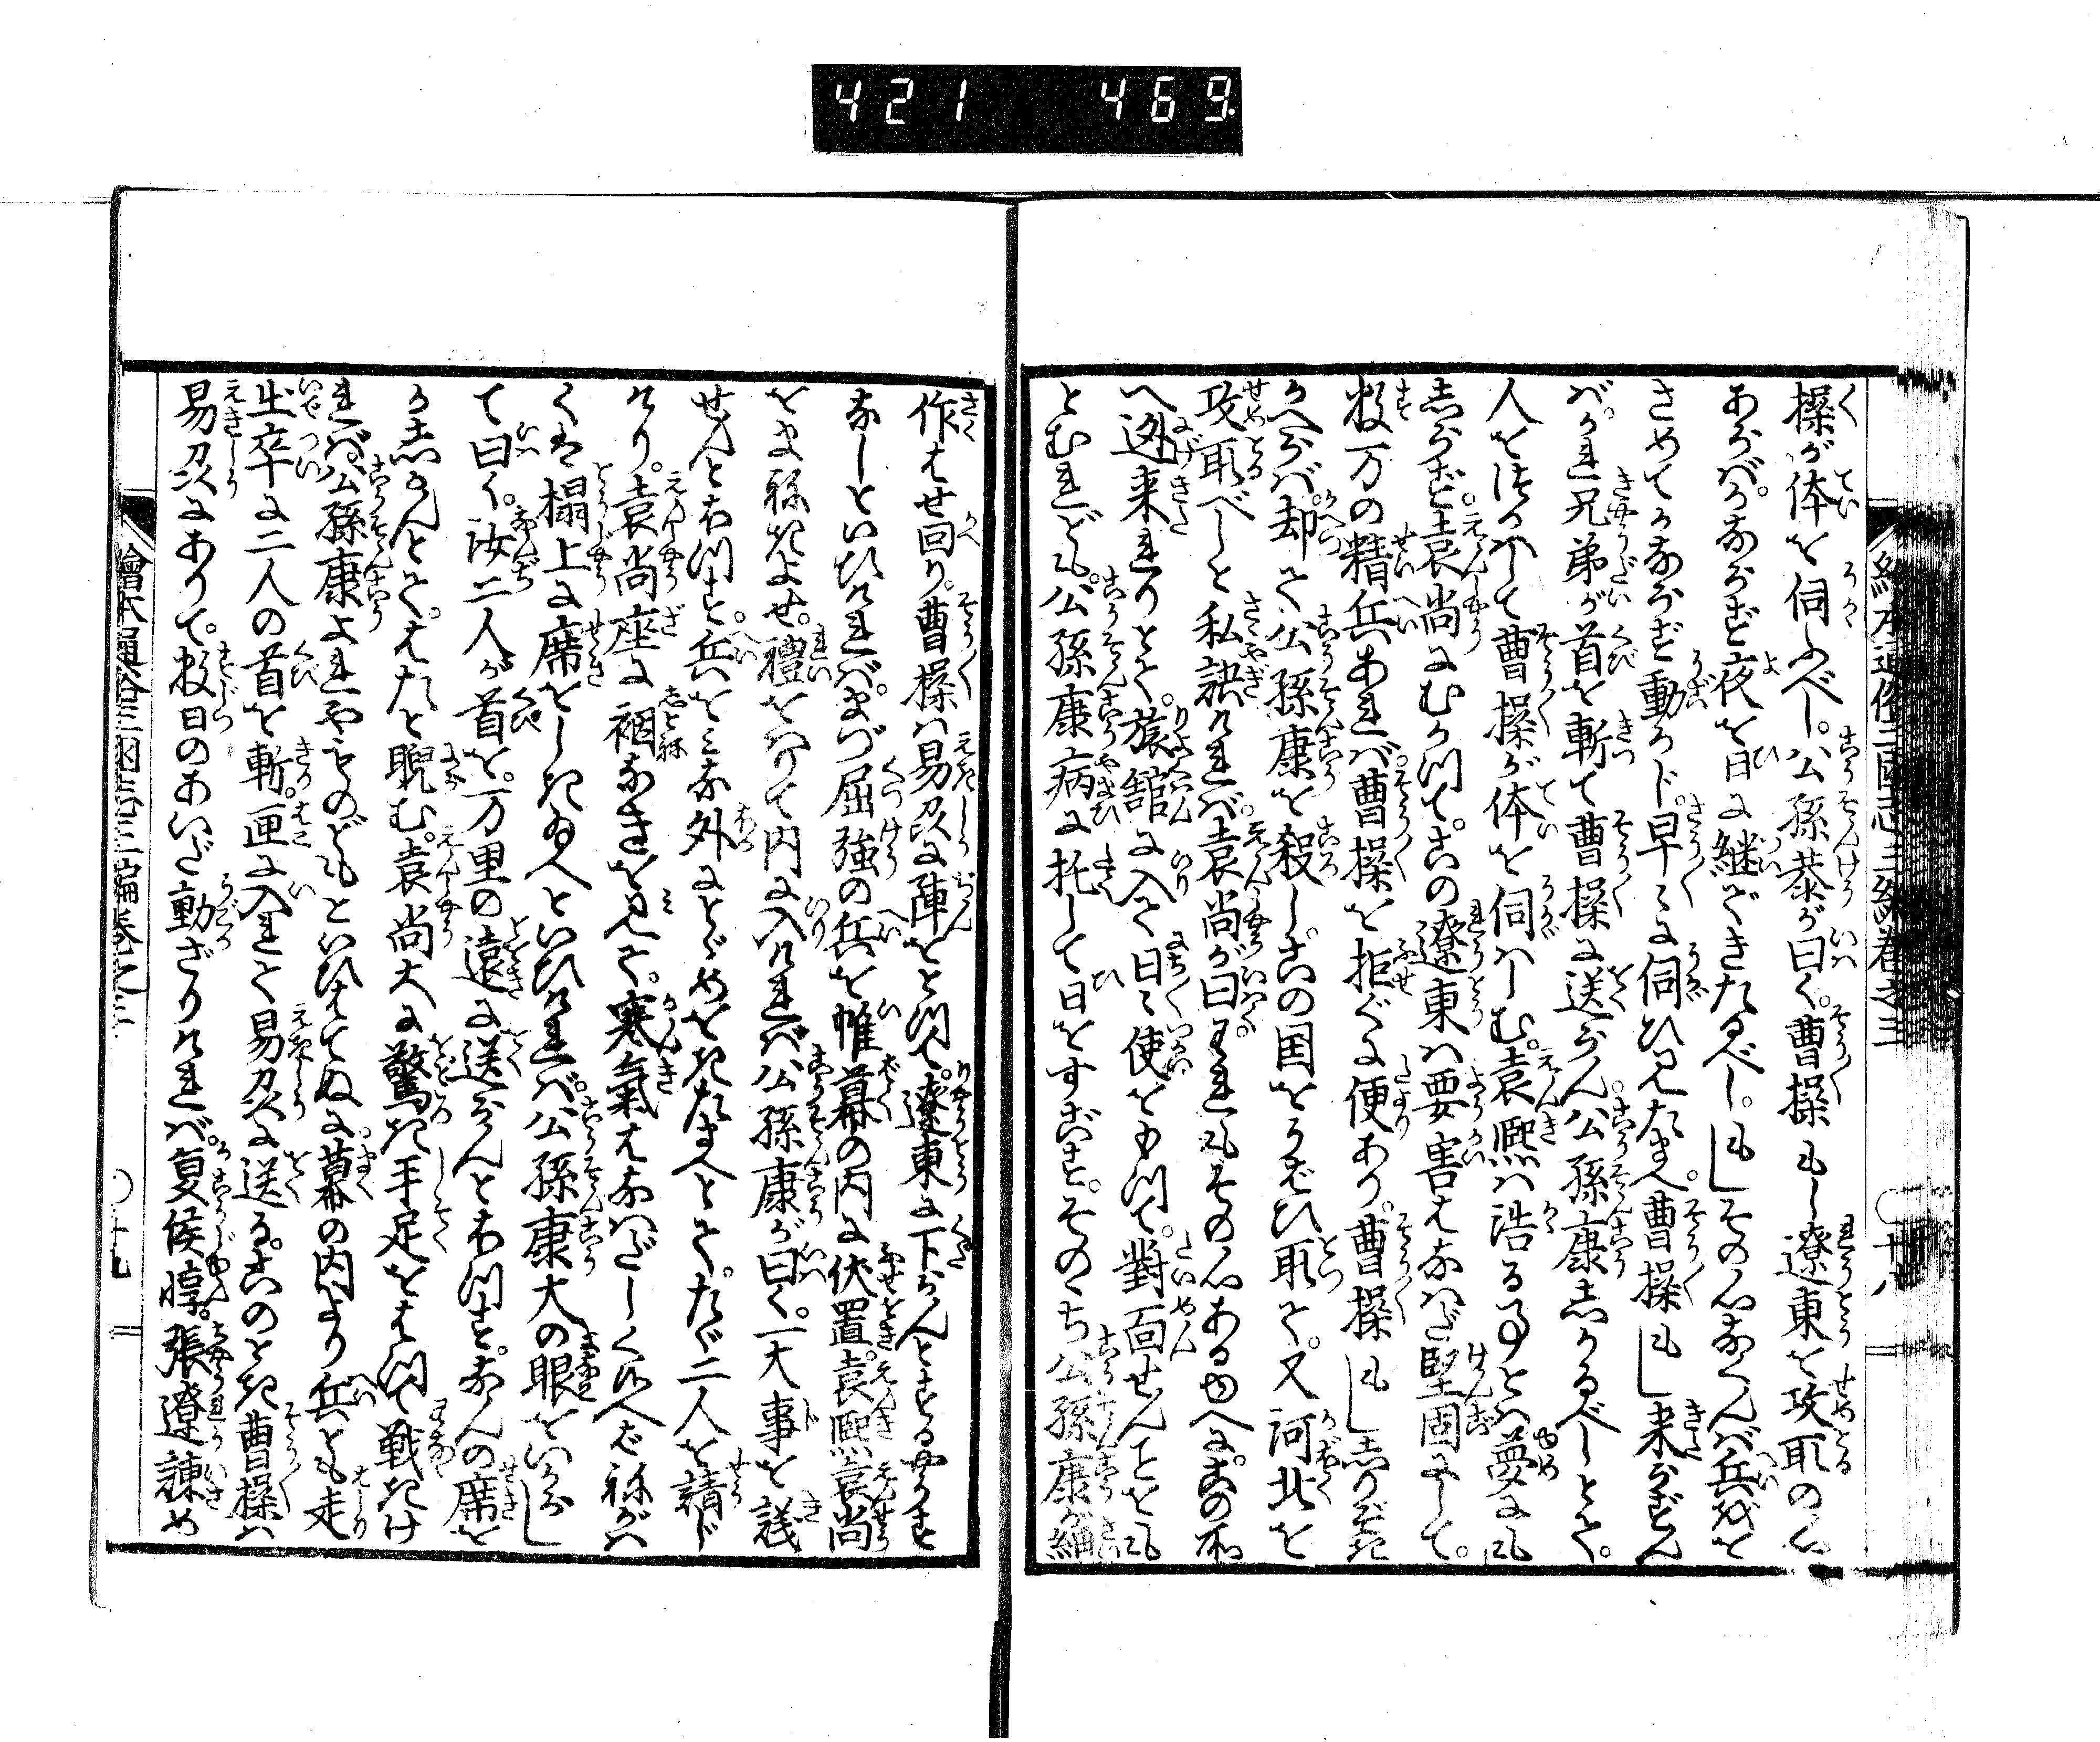 421 469
繪本通俗三國志三編卷之三 ○十八
操が体を伺ふべし。公孫恭が曰く。曹操もし遼東を攻取の心
あらバ。かならず夜を日に継できたるべし。もしその心なくんバ兵を
さめてかならず動かじ。早〻に伺ひ見たまへ。曹操もし来らずん
バ。かれ兄弟が首を斬て曹操に送らん。公孫康志かるべしとて。
人をつかハして曹操が体を伺ハしむ。袁熈ハ浩る事とハ夢にも
志らず。袁尚にむかつて。この遼東ハ要害はなハだ堅固にして。
数万の精兵あれバ。曹操を拒ぐに便あり。曹操もし志りぞき
かへらバ。却て公孫康を殺し。この国をうばひ取て。又河北を
攻取べしと私語けれバ。袁尚が曰く。われもその心あるゆへに。この所
へ迯来れりとて。旅館に入て日〻使をもつて。對面せんことをも
とむれども。公孫康病に托して日をすごす。そのゝち公孫康が細
作はせ回り。曹操ハ易州に陣をとつて。遼東に下らんとするやうす
なしといひけれバ。まづ屈強の兵を帷幕の内に伏置。袁熈袁尚
をまねきよせ。禮をハりて内に入けれバ。公孫康が曰く。一大事を議
せんとおつす。兵をミな外にとゞめをきたまへとて。たゞ二人を請じ
けり。袁尚座に裀なきを見て。寒氣はなハだしく候へバ。ねがハ
くは榻上に席をしきゐへといひけれバ。公孫康大の眼をいからし
て曰く。汝二人が首を。万里の遠に送らんとおつす。なんの席を
か志かんとて。はたと睨む。袁尚大に驚き手足をはつて戦きけ
れバ。公孫康よれやものどもといひはてぬに。幕の内より兵ども走
出卒に二人の首を斬。匣に入れて易州に送る。このとき曹操ハ
易州にありて。数日のあいだ動ざりけれバ。夏侯惇。張遼諫め
繪本通俗三國志三編卷之三 ○十九